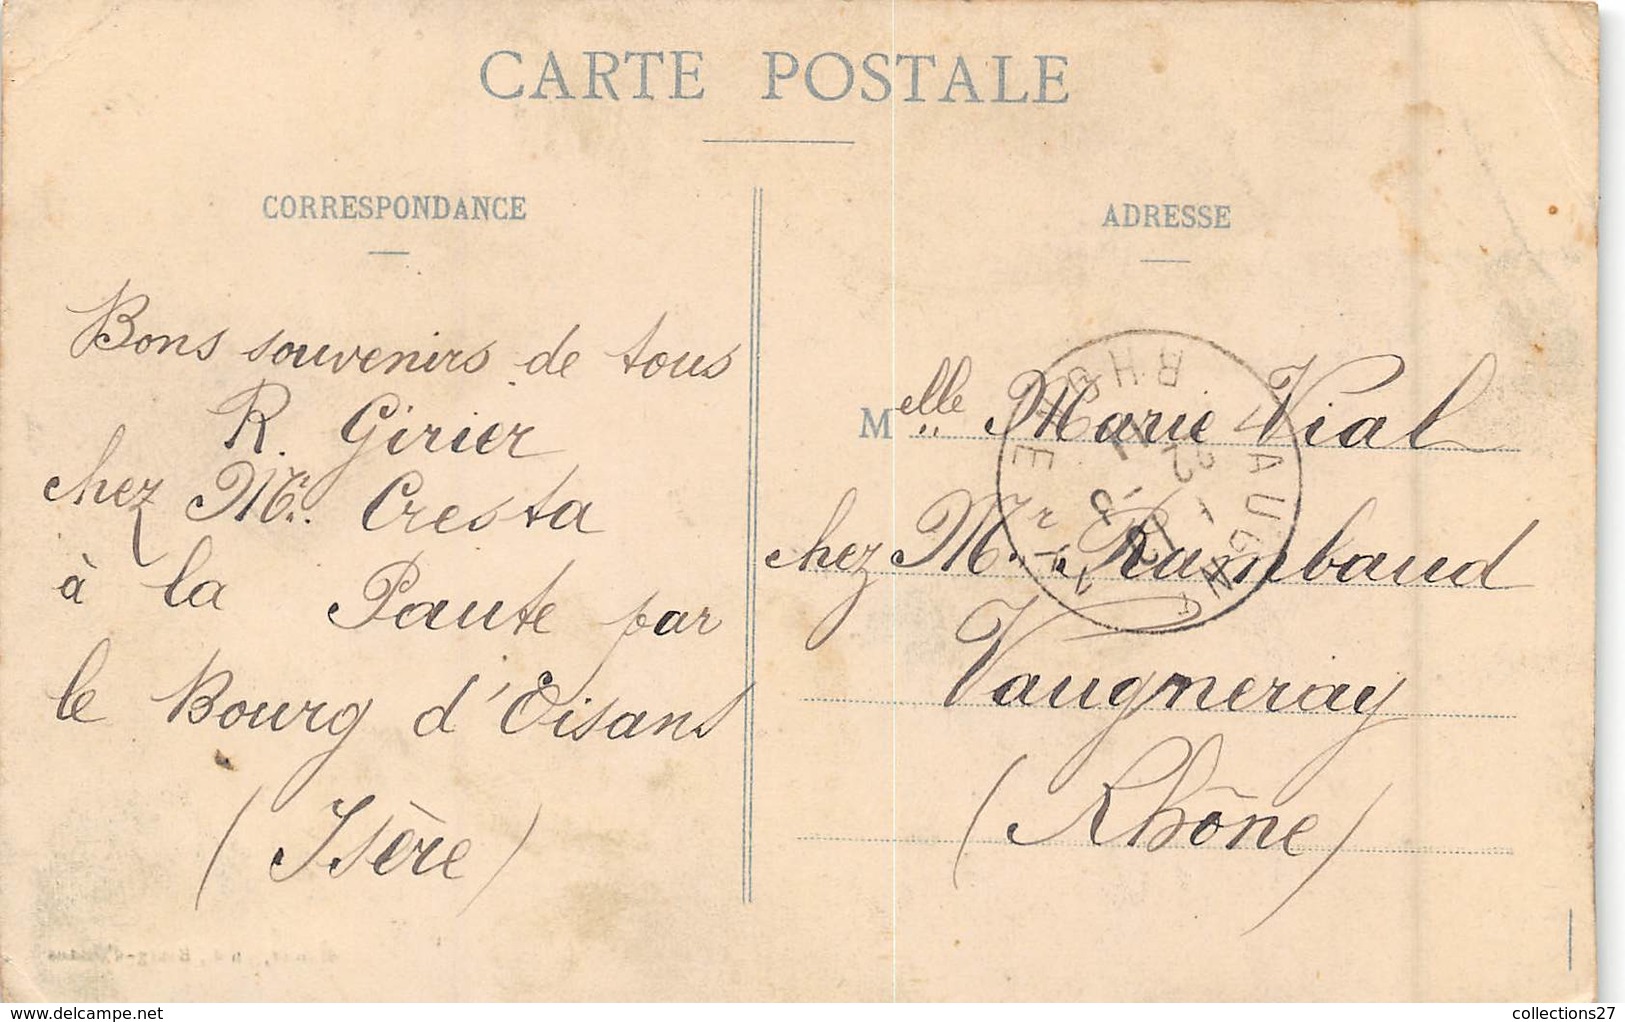 CARTE POSTALE
CORRESPONDANCE
Bons souvenirs de tous
R. Girier
chez Mr. Cresta
à la Paute par
le Bourg d'Oisans
(Isère)
ADRESSE
Melle Marie Vial
chez Mr Rambaud
Vaugneray
(Rhône)
RHONE
delcampe.net
collections27